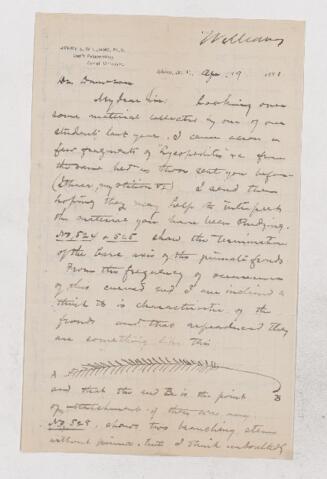 Williams
Ithaca, N.Y., Apr 19 1881
Dr Dawson
My dear Sir. Looking over
some material collected by one of our
students last year, I came across a
few fragments of "Lycopodites" &c from
the same bed as those sent you before
I send them
hoping they may help to interpret
the material you have been studying.
No. 524 & 525 show the termination
of the bare axis of the pinnate fronds
From the frequency of occurrence
of this curved end I am inclined to
think it is characteristic of the
fronds and that reproduced they
are something like this
A
B
and that the end B is the point
of attachment of these
No. 528, shows two branching stems
without pinnae. but I think undoubtedly